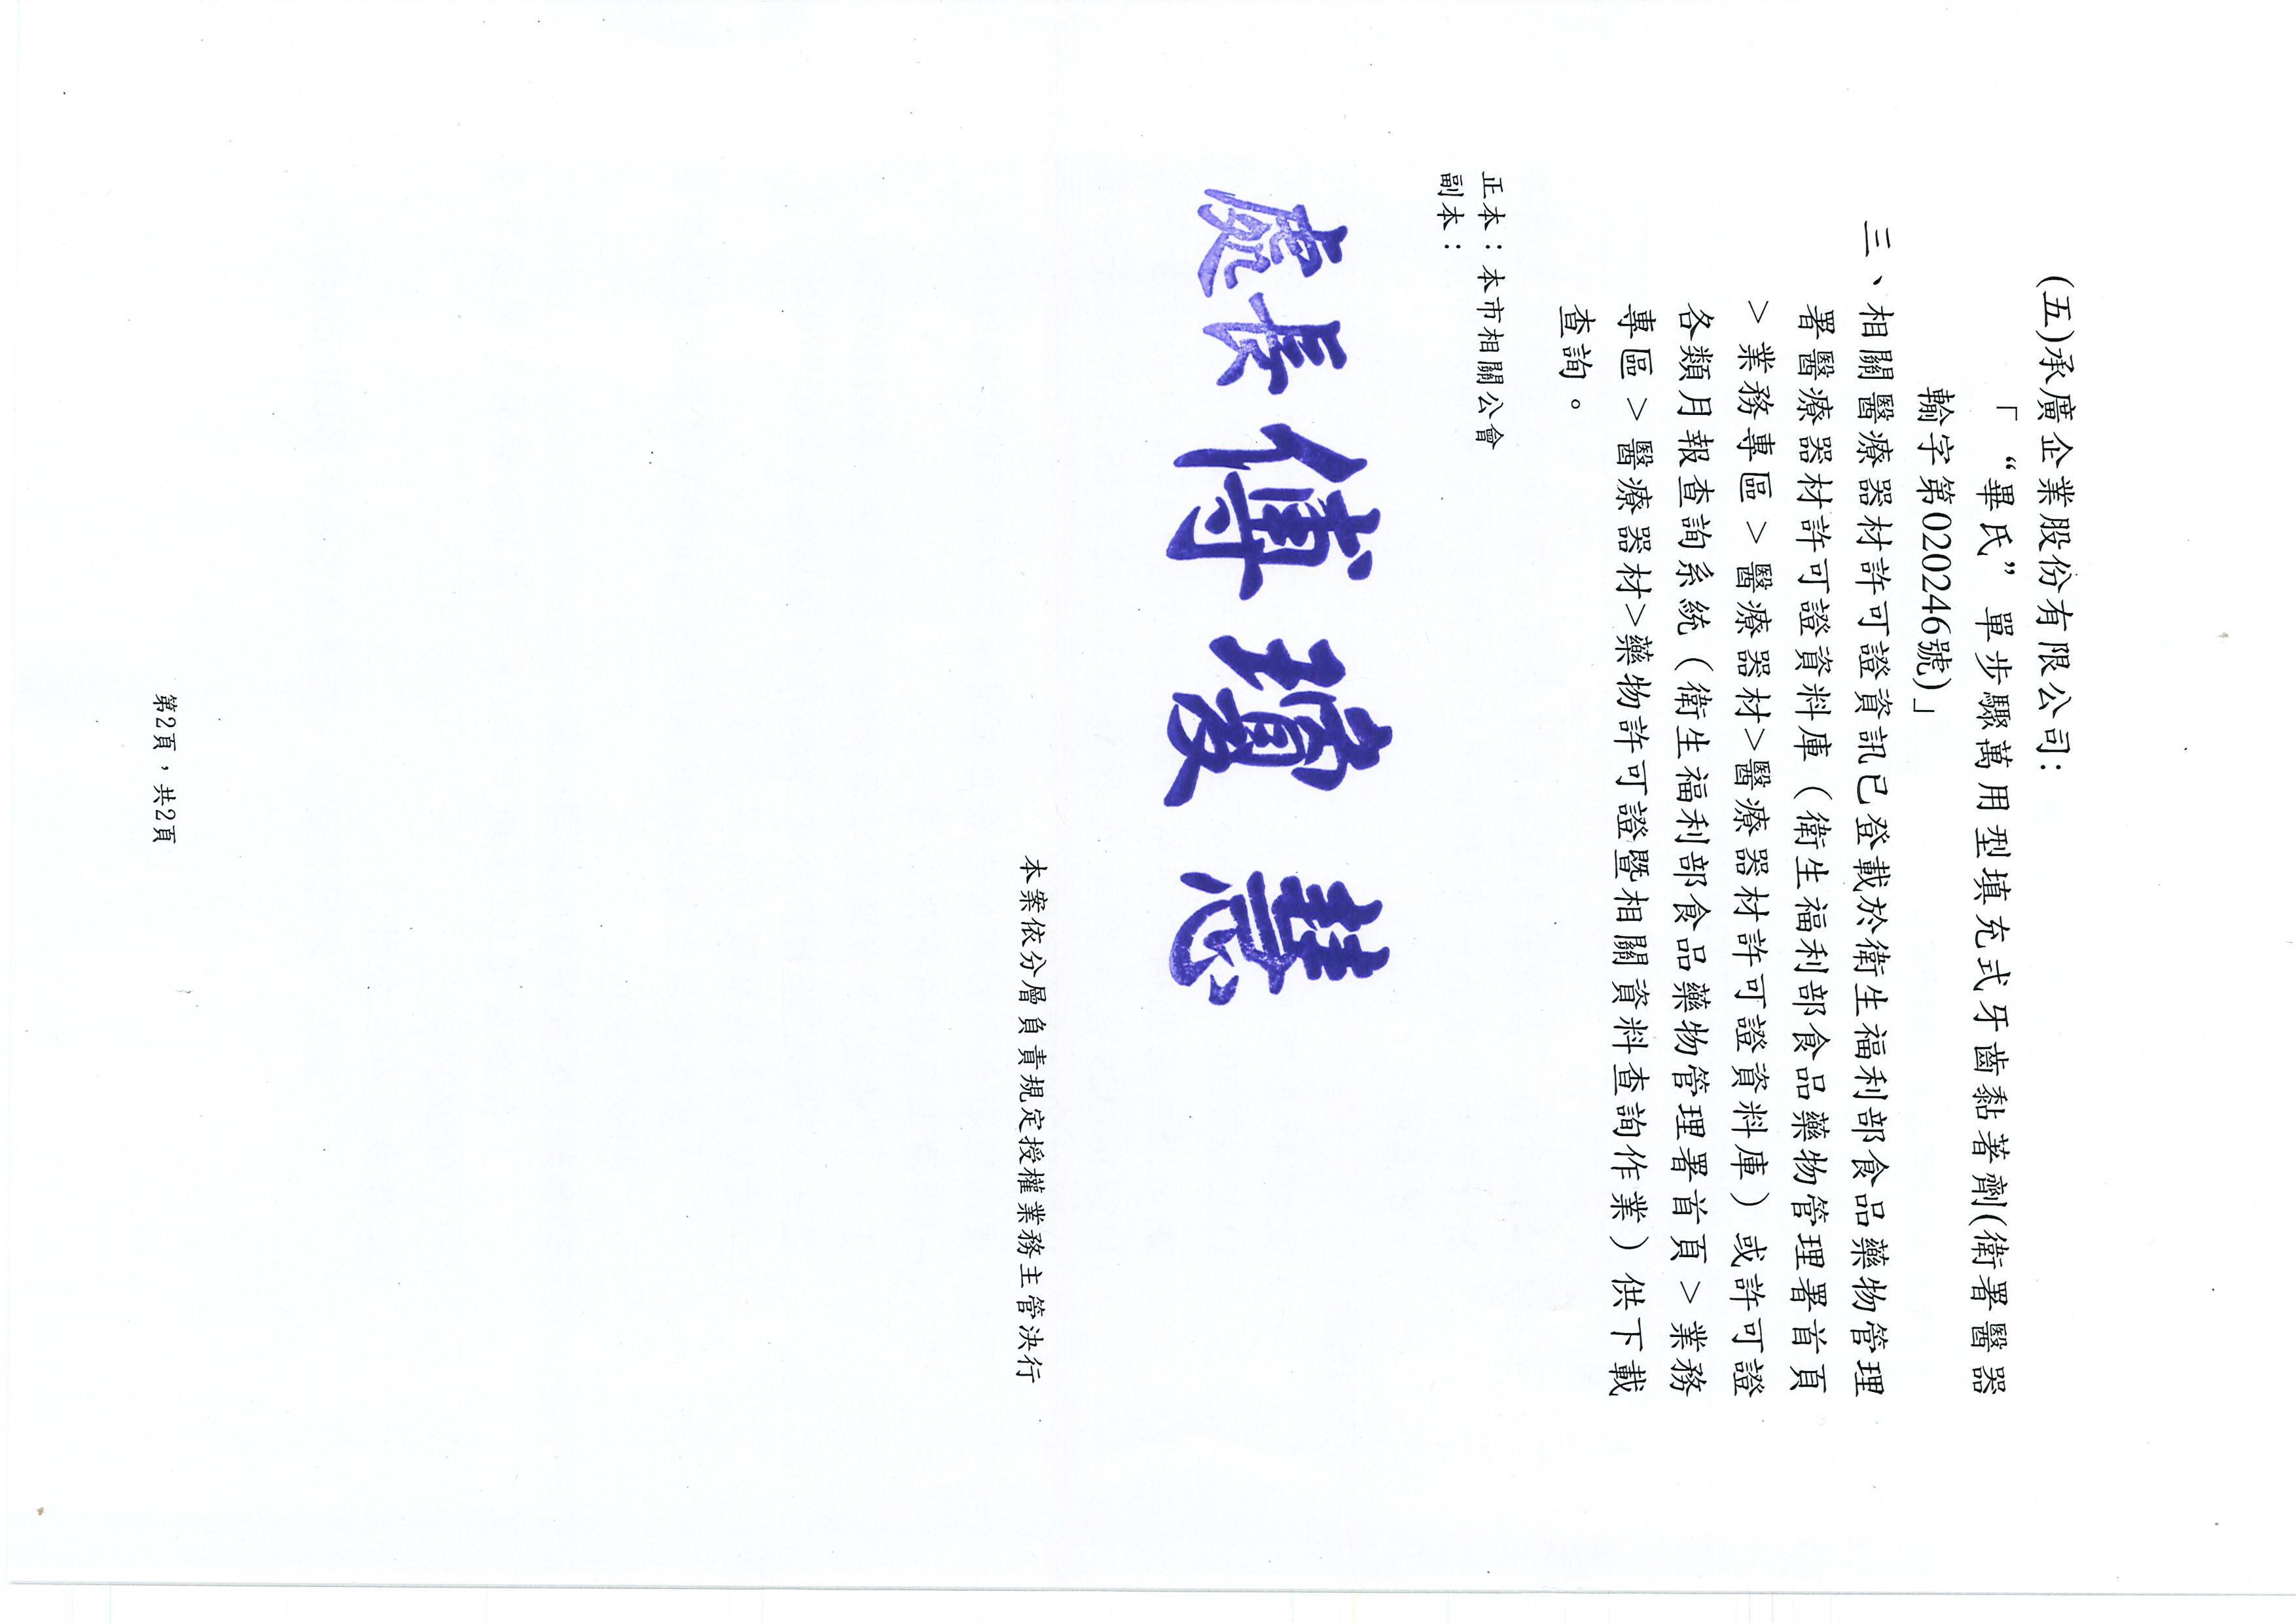 (五)承廣企業股份有限公司:
「 “畢氏” 單步驟萬用型填充式牙齒黏著劑(衛署醫器
輸字第020246號)」
三、相關醫療器材許可證資訊已登載於衛生福利部食品藥物管理
署醫療器材許可證資料庫（衛生福利部食品藥物管理署首頁
>業務專區>醫療器材>醫療器材許可證資料庫）或許可證
各類月報查詢系統（衛生福利部食品藥物管理署首頁>業務
專區>醫療器材>藥物許可證暨相關資料查詢作業）供下載
查詢。
正本：本市相關公會
副本：
處長 傅瓊慧
本案依分層負責規定授權業務主管決行
第2頁，共2頁